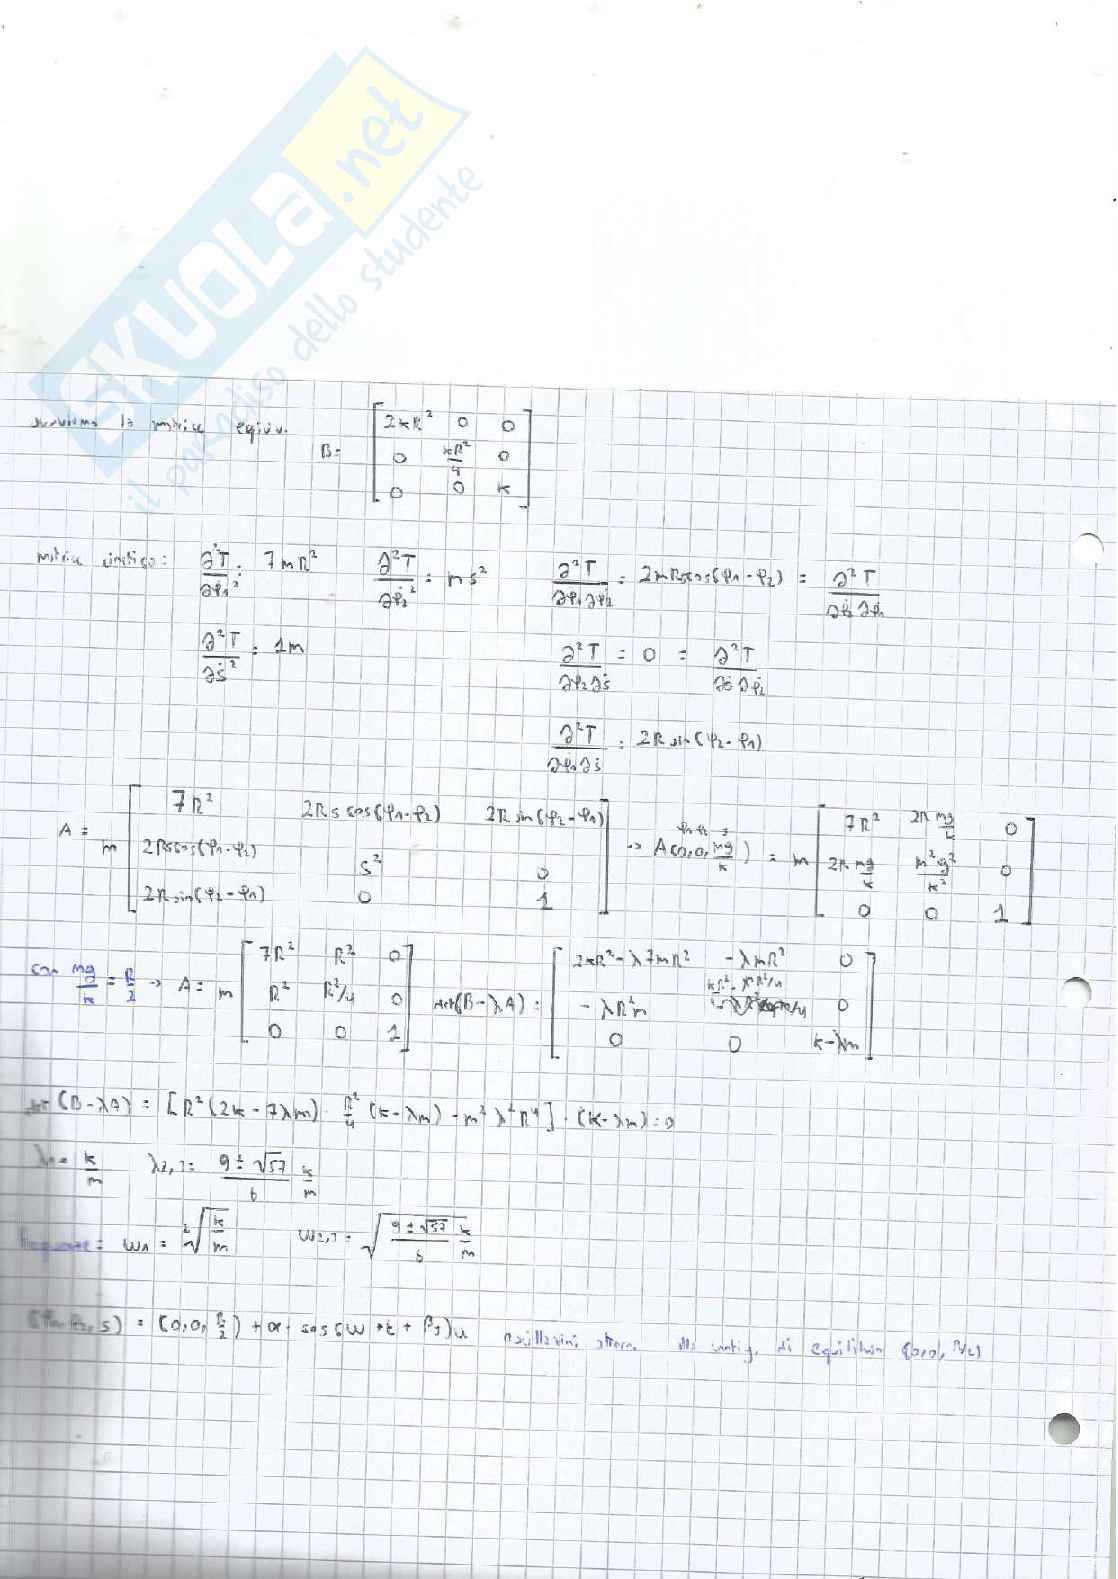 SKUOLA.net
il paradiso dello studente
la matrice equiv. B = [2kR² 0 0; 0 kR²/4 0; 0 0 k]
matrice cinetica: ∂²T/∂φ̇₁² = 7mR² ∂²T/∂φ̇₂² = ms² ∂²T/∂φ̇₁∂φ̇₂ = 2mRscos(φ₁-φ₂) = ∂²T/∂φ̇₂∂φ̇₁
∂²T/∂ṡ² = 1m ∂²T/∂φ̇₂∂ṡ = 0 = ∂²T/∂ṡ∂φ̇₂
∂²T/∂φ̇₁∂ṡ = 2R sin(φ₂-φ₁)
A = m [7R² 2Rs cos(φ₁-φ₂) 2R sin(φ₂-φ₁); 2Rscos(φ₁-φ₂) s² 0; 2R sin(φ₂-φ₁) 0 1] → A(0,0,mg/k) = m [7R² 2R mg/k 0; 2R mg/k m²g²/k² 0; 0 0 1]
con mg/k = R/2 → A = m [7R² R² 0; R² R²/4 0; 0 0 1] det(B-λA) = [2kR²-λ7mR² -λmR² 0; -λR²m 0; 0 0 k-λm]
det(B-λA) = [R²(2k-7λm) · R²/4 (k-λm) - m²λ²R⁴] · (k-λm) = 0
λ₁ = k/m λ₂,₃ = 9±√57/6 k/m
Frequenze: ω₁ = ²√k/m ω₂,₃ = √9±√57/6 k/m
(φ₁,φ₂,s) = (0,0,R/2) + α · cos(ω · t + β)u oscillazioni di equilibrio (0,0,R/2)